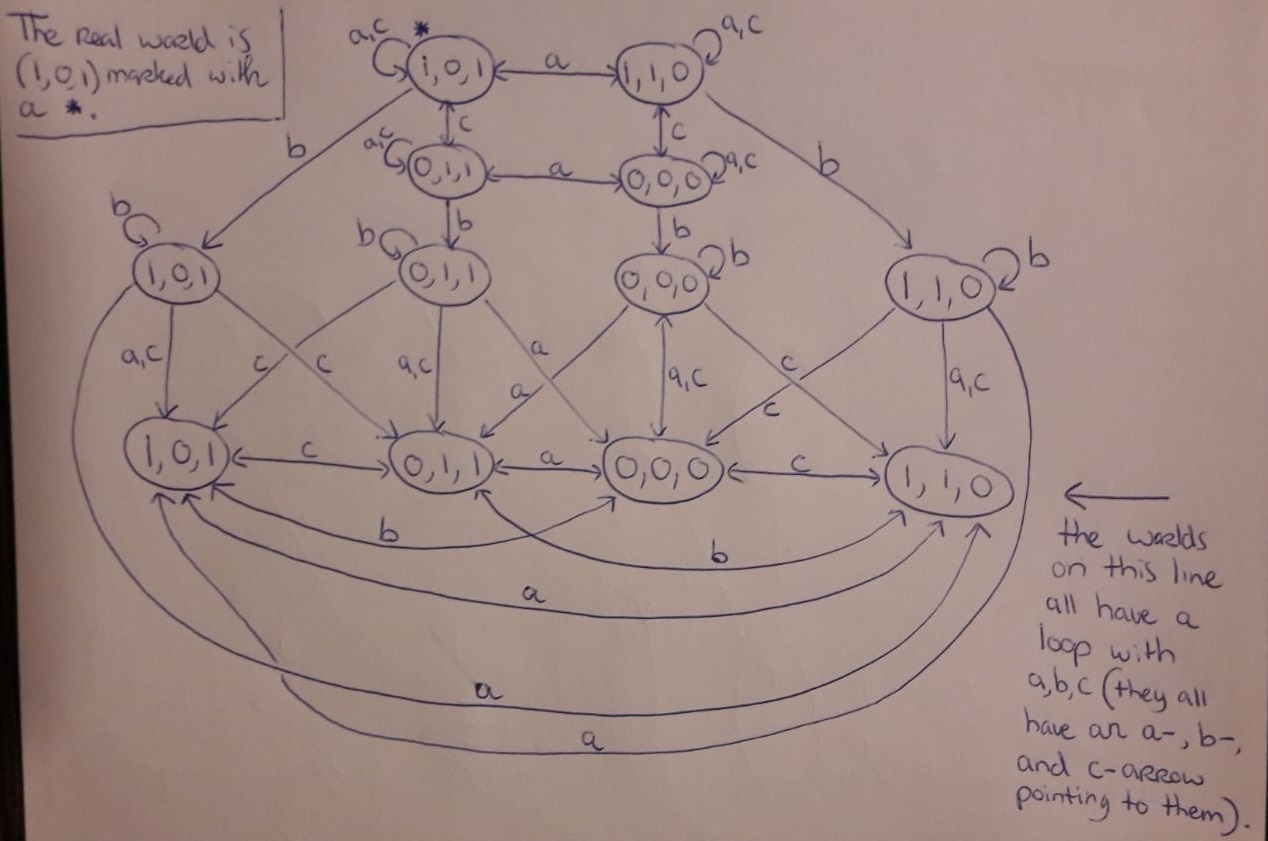 The real world is
(1,0,1) marked with
a *.
a,c
*
1,0,1
a
1,1,0
a,c
c
c
a,c
0,1,1
a
0,0,0
a,c
b
b
b
b
b
1,0,1
b
0,1,1
0,0,0
b
1,1,0
b
a,c
c
c
a,c
a
a
a,c
c
c
a,c
1,0,1
c
0,1,1
a
0,0,0
c
1,1,0
b
b
a
a
a
the worlds
on this line
all have a
loop with
a,b,c (they all
have an a-, b-,
and c-arrow
pointing to them).